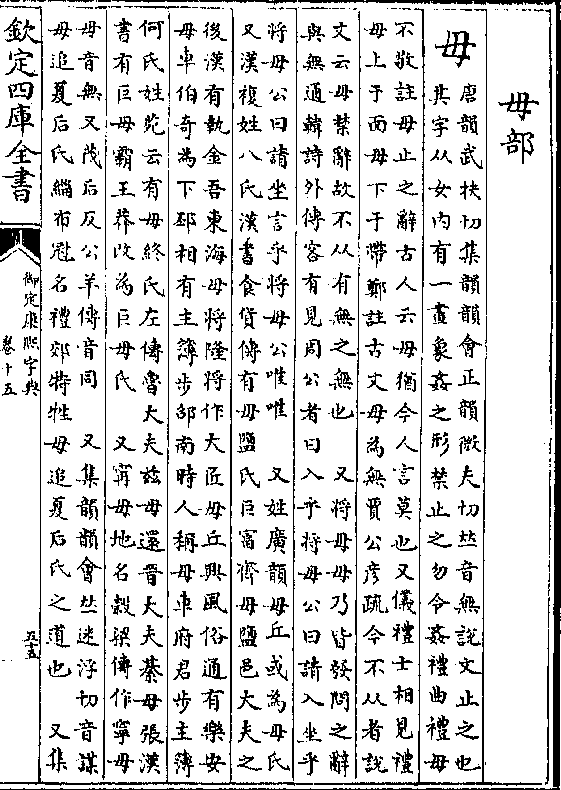 毋部
毋 唐韻武扶切集韻韻會正韻微夫切𠀤音無說文止之也
其字从女內有一畫象姦之形禁止之勿令姦禮曲禮毋
不敬註毋止之辭古人云毋猶今人言莫也又儀禮士相見禮
毋上于面毋下于帶鄭註古文毋為無賈公彥疏今不从者說
文云毋禁辭故不从有無之無也 又將毋毋乃皆發問之辭
與無通韓詩外傳客有見周公者曰入乎將毋公曰請入坐乎
將毋公曰請坐言乎將毋公唯唯 又姓廣韻毋丘或為毋氏
又漢複姓八氏漢書食貨傳有毋鹽氏巨富齊毋鹽邑大夫之
後漢有執金吾東海毋將隆將作大匠毋丘興風俗通有樂安
毋車伯奇為下邳相有主簿步邵南時人稱毋車府君步主簿
何氏姓苑云有毋終氏左傳魯大夫茲毋還晉大夫綦毋張漢
書有巨毋霸王莽改為巨毋氏 又甯毋地名穀梁傳作寧毋
毋音無又茂后反公羊傳音同 又集韻韻會𠀤迷浮切音謀
毋追夏后氏緇布冠名禮郊特牲毋追夏后氏之道也 又集
欽定四庫全書
御定康熙字典
卷十五
五五